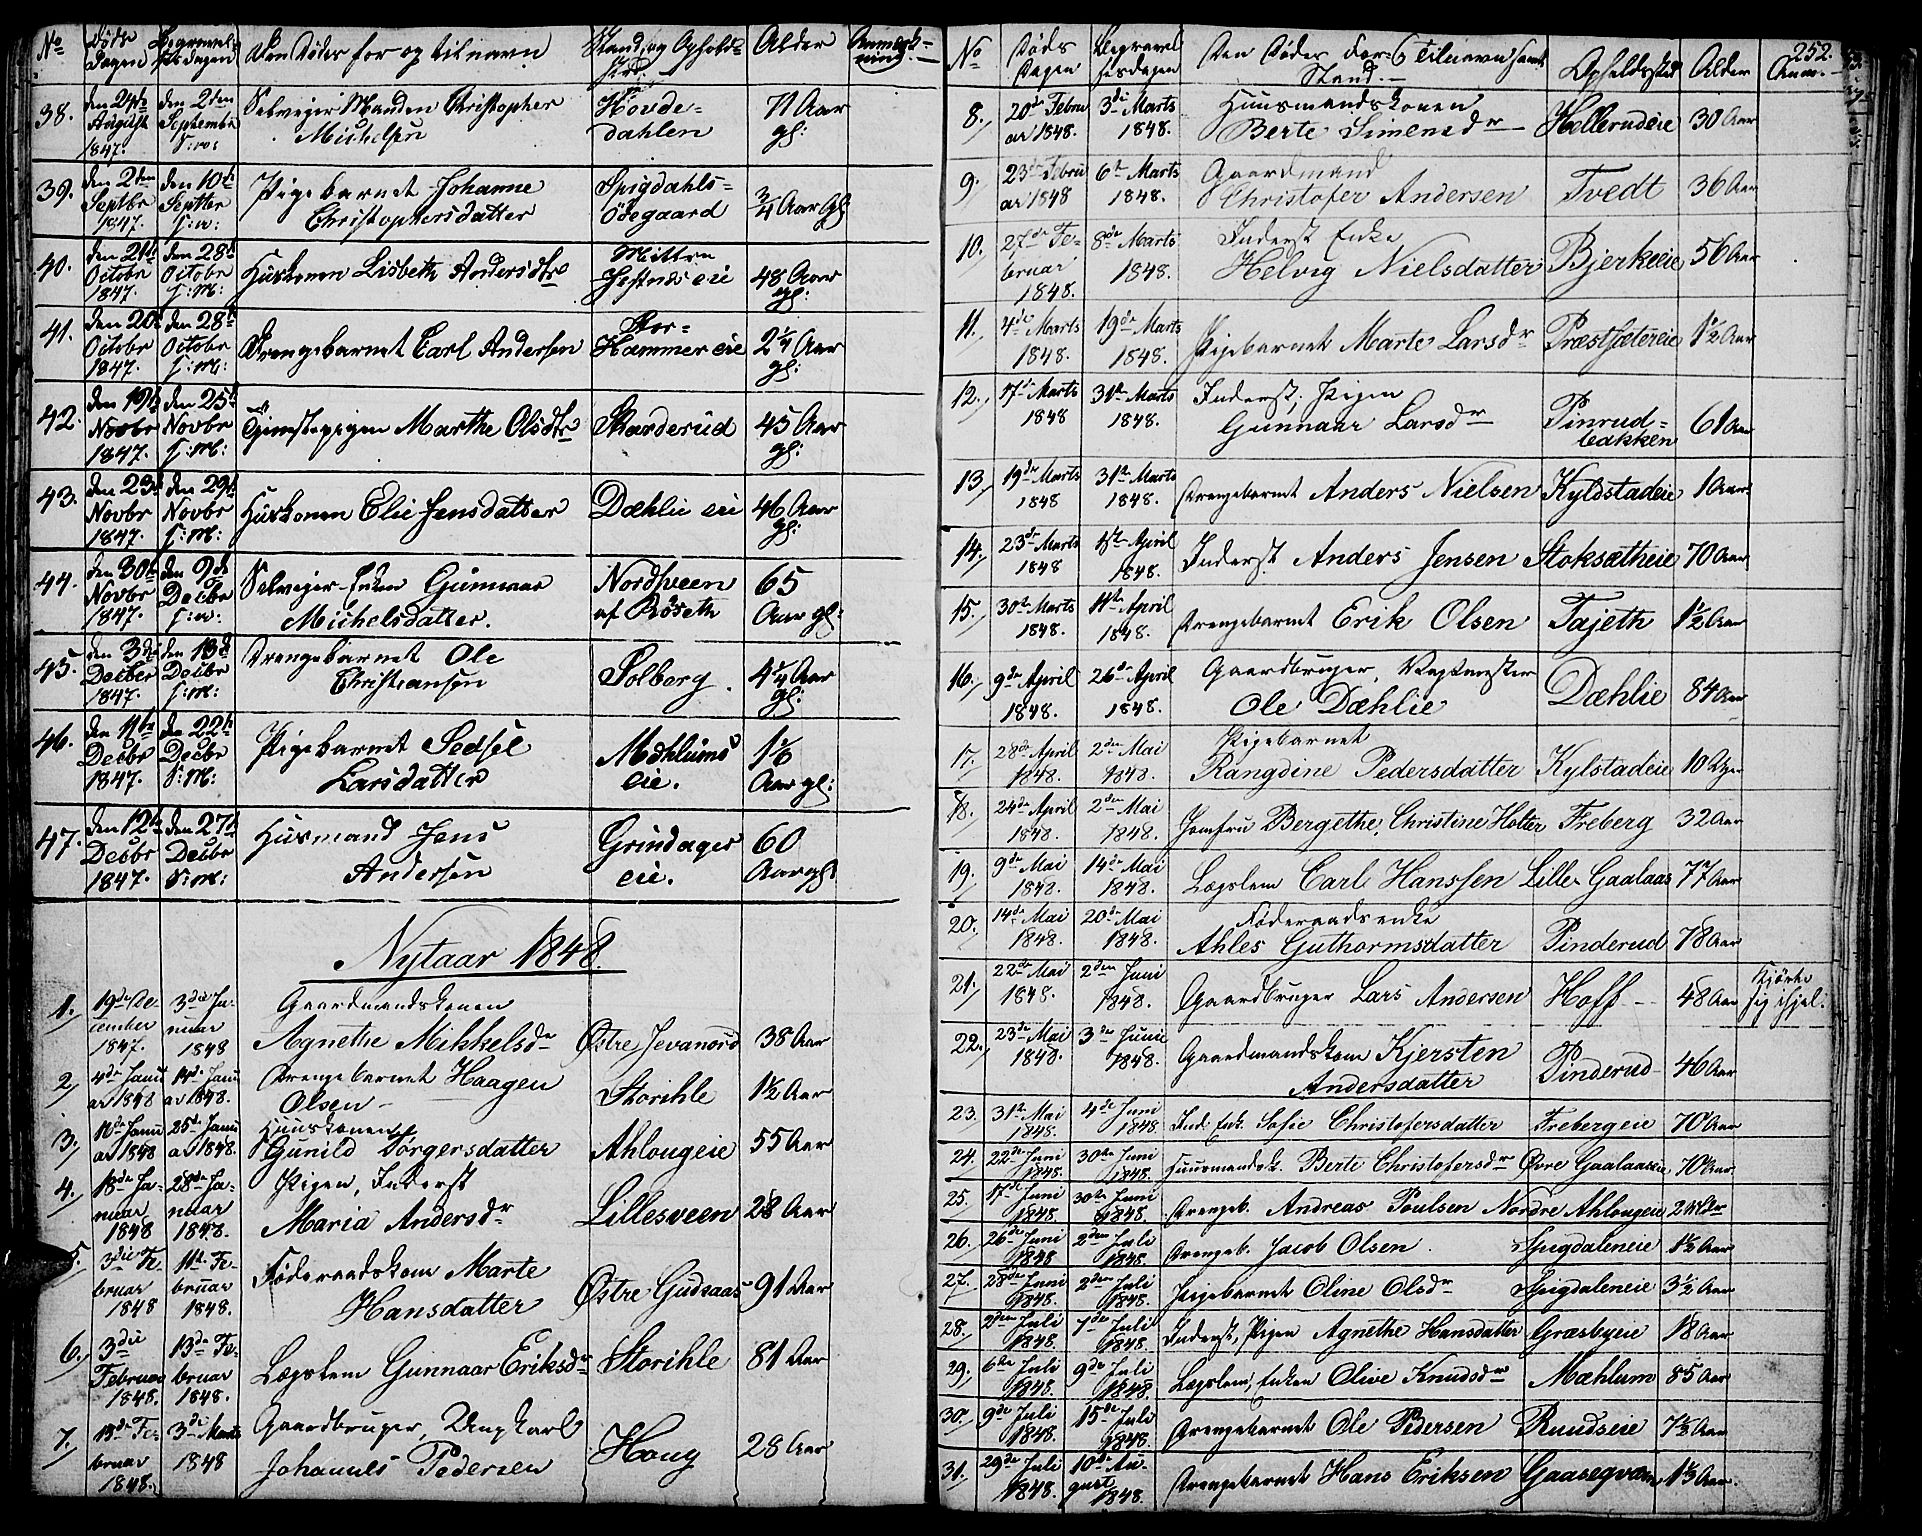 No Døds Dagen Begravel- sesdagen Den Dødes for og tilnavn Stand, og Opholds- sted. Alder Anmærk- ning.
38. den 24de August 1847. den 2den September Selveiger Manden Christopher Michelsen Hovde- dahlen 71 Aar gl:
39. den 2den Septbr 1847. den 10de Septbr Pigebarnet Johanne Christophersdatter Spigdahls- Ødegaard 3/4 Aar gl:
40. den 21de Octobr 1847. den 28de Octobr s: M: Huskonen Lisbeth Andersdtr eie 48 Aar gl:
41. den 20de Octobr 1847. den 28de Octobr s: M: Drengebarnet Carl Andersen Stor- Hammer eie 2 1/4 Aar gl:
42. den 19de Novbr 1847. den 25de Novbr s: M: Tjenstepigen Marthe Olsdtr Skarderud 45 Aar gl:
43. den 23de Novbr 1847. den 29de Novbr s: M: Huskonen Elie Jensdatter Dæhlie eie 46 Aar gl:
44. den 30te Novbr 1847. den 9de Decbr Selveier Enken Gunnaar Michelsdatter. Nordsveen af Røseth 65 Aar gl:
45. den 3de Decber 1847. den 13de Decbr s: M: Drengebarnet Ole Christiansen Solberg. 4 1/4 Aar gl:
46. den 11te Decbr 1847. den 22de Decbr s: M: Pigebarnet Sedsel Larsdatter Mæhlums eie. 1 1/6 Aar gl:
47. den 12te Decbr 1847. den 27de Decbr s: M: Husmand Jens Andersen Grindager eie. 60 Aar gl:
Nytaar 1848.
1. 19de De- cember 1847. 3die Ja- nuar 1848 Gaardmandskonen Agnethe Mikkelsdr Østre Jevanord 38 Aar
2. 4de Janu ar 1848 14de Janu ar 1848. Drengebarnet Haagen Olsen Storihle 1 1/2 Aar
3. 10de Janu ar 1848 25de Janu ar 1848. Huuskonen Gunild Tørgersdatter Ahlougeie 55 Aar
4. 18de Ja- nuar 1848 28de Ja- nuar 1848. Pigen, Inderst Maria Andersdr Lillesveen 28 Aar
5. 3die Fe- bruar 1848 11te Fe- bruar 1848. Føderaadskone Marte Hansdatter Østre Gudsaas 91 Aar
6. 3die Februar 1848. 13de Fe- bruar 1848. Lægslem Gunnaar Eriksdr Storihle 81 Aar
7. 15de Fe- bruar 1848. 3die Marts 1848 Gaardbruger, Ungkarl Johannes Pedersen Houg 28 Aar
252.
No Døds Dagen Begravel sesdagen Den Dødes For & Tilnavn samt Stand. Opholdssted Alder Anm.
8. 20de Febru ar 1848. 3die Marts 1848. Huusmandskonen Berte Simensdr Hellerudeie 30 Aar
9. 23de Febru ar 1848 6te Marts 1848. Gaardmand Christofer Andersen Tvedt 36 Aar
10. 27de Fe- bruar 1848. 8de Marts 1848. Inderst Enke Helvig Nielsdatter Bjerkeeie 56 Aar
11. 4de Marts 1848. 19de Marts 1848. Pigebarnet Marte Larsdr Præstsætereie 1 1/2 Aar
12. 17de Marts 1848 31te Marts 1848. Inderst, Pigen Gunnaar Larsdr Pinrud- bakken 61 Aar
13. 19de Marts 1848 31te Marts 1848. Drengebarnet Anders Nielsen Kyldstadeie 1 Aar
14. 23de Marts 1848 1ste April 1848. Inderst Anders Jensen Stoksætheie 70 Aar
15. 30te Marts 1848. 11te April 1848. Drengebarnet Erik Olsen Tajeth 1 1/2 Aar
16. 9de April 1848. 26de April 1848. Gaardbruger, Ole Dæhlie Dæhlie 84 Aar
17. 28de April 1848. 2den Mai 1848. Pigebarnet Rangdine Pedersdatter Kylstadeie 10 Uger
18. 24de April 1848. 2den Mai 1848. Jomfru Bergethe, Christine Holter Freberg 32 Aar
19. 9de Mai 1848. 14de Mai 1848. Lægslem Carl Hanssen Lille Gaalaas 77 Aar
20. 14de Mai 1848. 20de Mai 1848. Føderaadsenke Ahles Guthormsdatter Pinderud 78 Aar
21. 22de Mai 1848. 2den Juni 1848. Gaardbruger Lars Andersen Hoff 48 Aar Kjørte sig ihjel.
22. 23de Mai 1848. 3die Juni 1848. Gaardmandskone Kjersten Andersdatter Pinderud 46 Aar
23. 31te Mai 1848. 4de Juni 1848. Ind: Enk. Sofie Christofersdatter Frebergeie 70 Aar
24. 22de Juni 1848. 30te Juni 1848. Huusmandsk. Berte Christofersdr Øvre Gaalaaseie 70 Aar
25. 17de Juni 1848. 30te Juni 1848. Drengeb. Andreas Poulsen Nordre Ahlougeie
26. 26de Juni 1848 2den Juli 1848. Drengeb. Jacob Olsen. Spigdaleneie 1 1/2 Aar
27. 28de Juni 1848. 2den Juli 1848. Pigebarnet Oline Olsdr Spigdaleneie 3 1/2 Aar
28. 2den Juli 1848. 7de Juli 1848. Inderst, Pigen Agnethe Hansdatter Græsbyeie 18 Aar
29. 6te Juli 1848. 9de Juli 1848. Lægslem, Enken Olive Knudsdr Mæhlum 85 Aar
30. 9de Juli 1848. 15de Juli 1848. Drengebarnet Ole Pedersen Ruudseie 7 1/2 Aar
31. 29de Juli 1848. 10de Au- gust 1848. Drengebarnet Hans Eriksen 1 1/3 Aar.